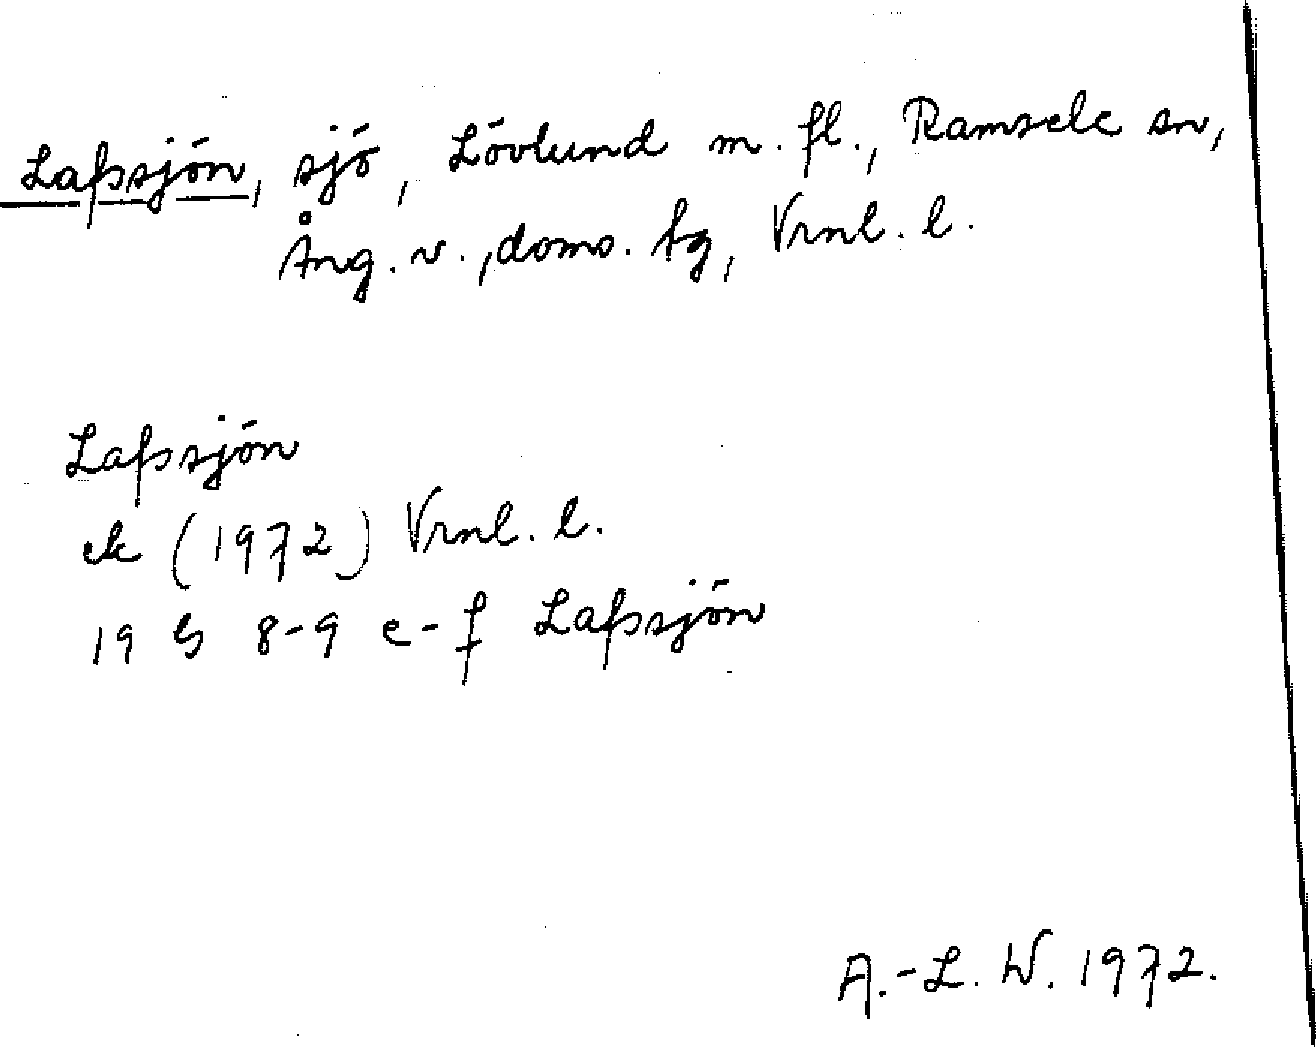 Lafssjön, sjö, Lövlund m. fl., Ramsele sn,
Ång. v., doms. tg, Vrnl. l.
Lafssjön
ek (1972) Vrnl. l.
19 G 8-9 e-f Lafssjön
A.-L. W. 1972.